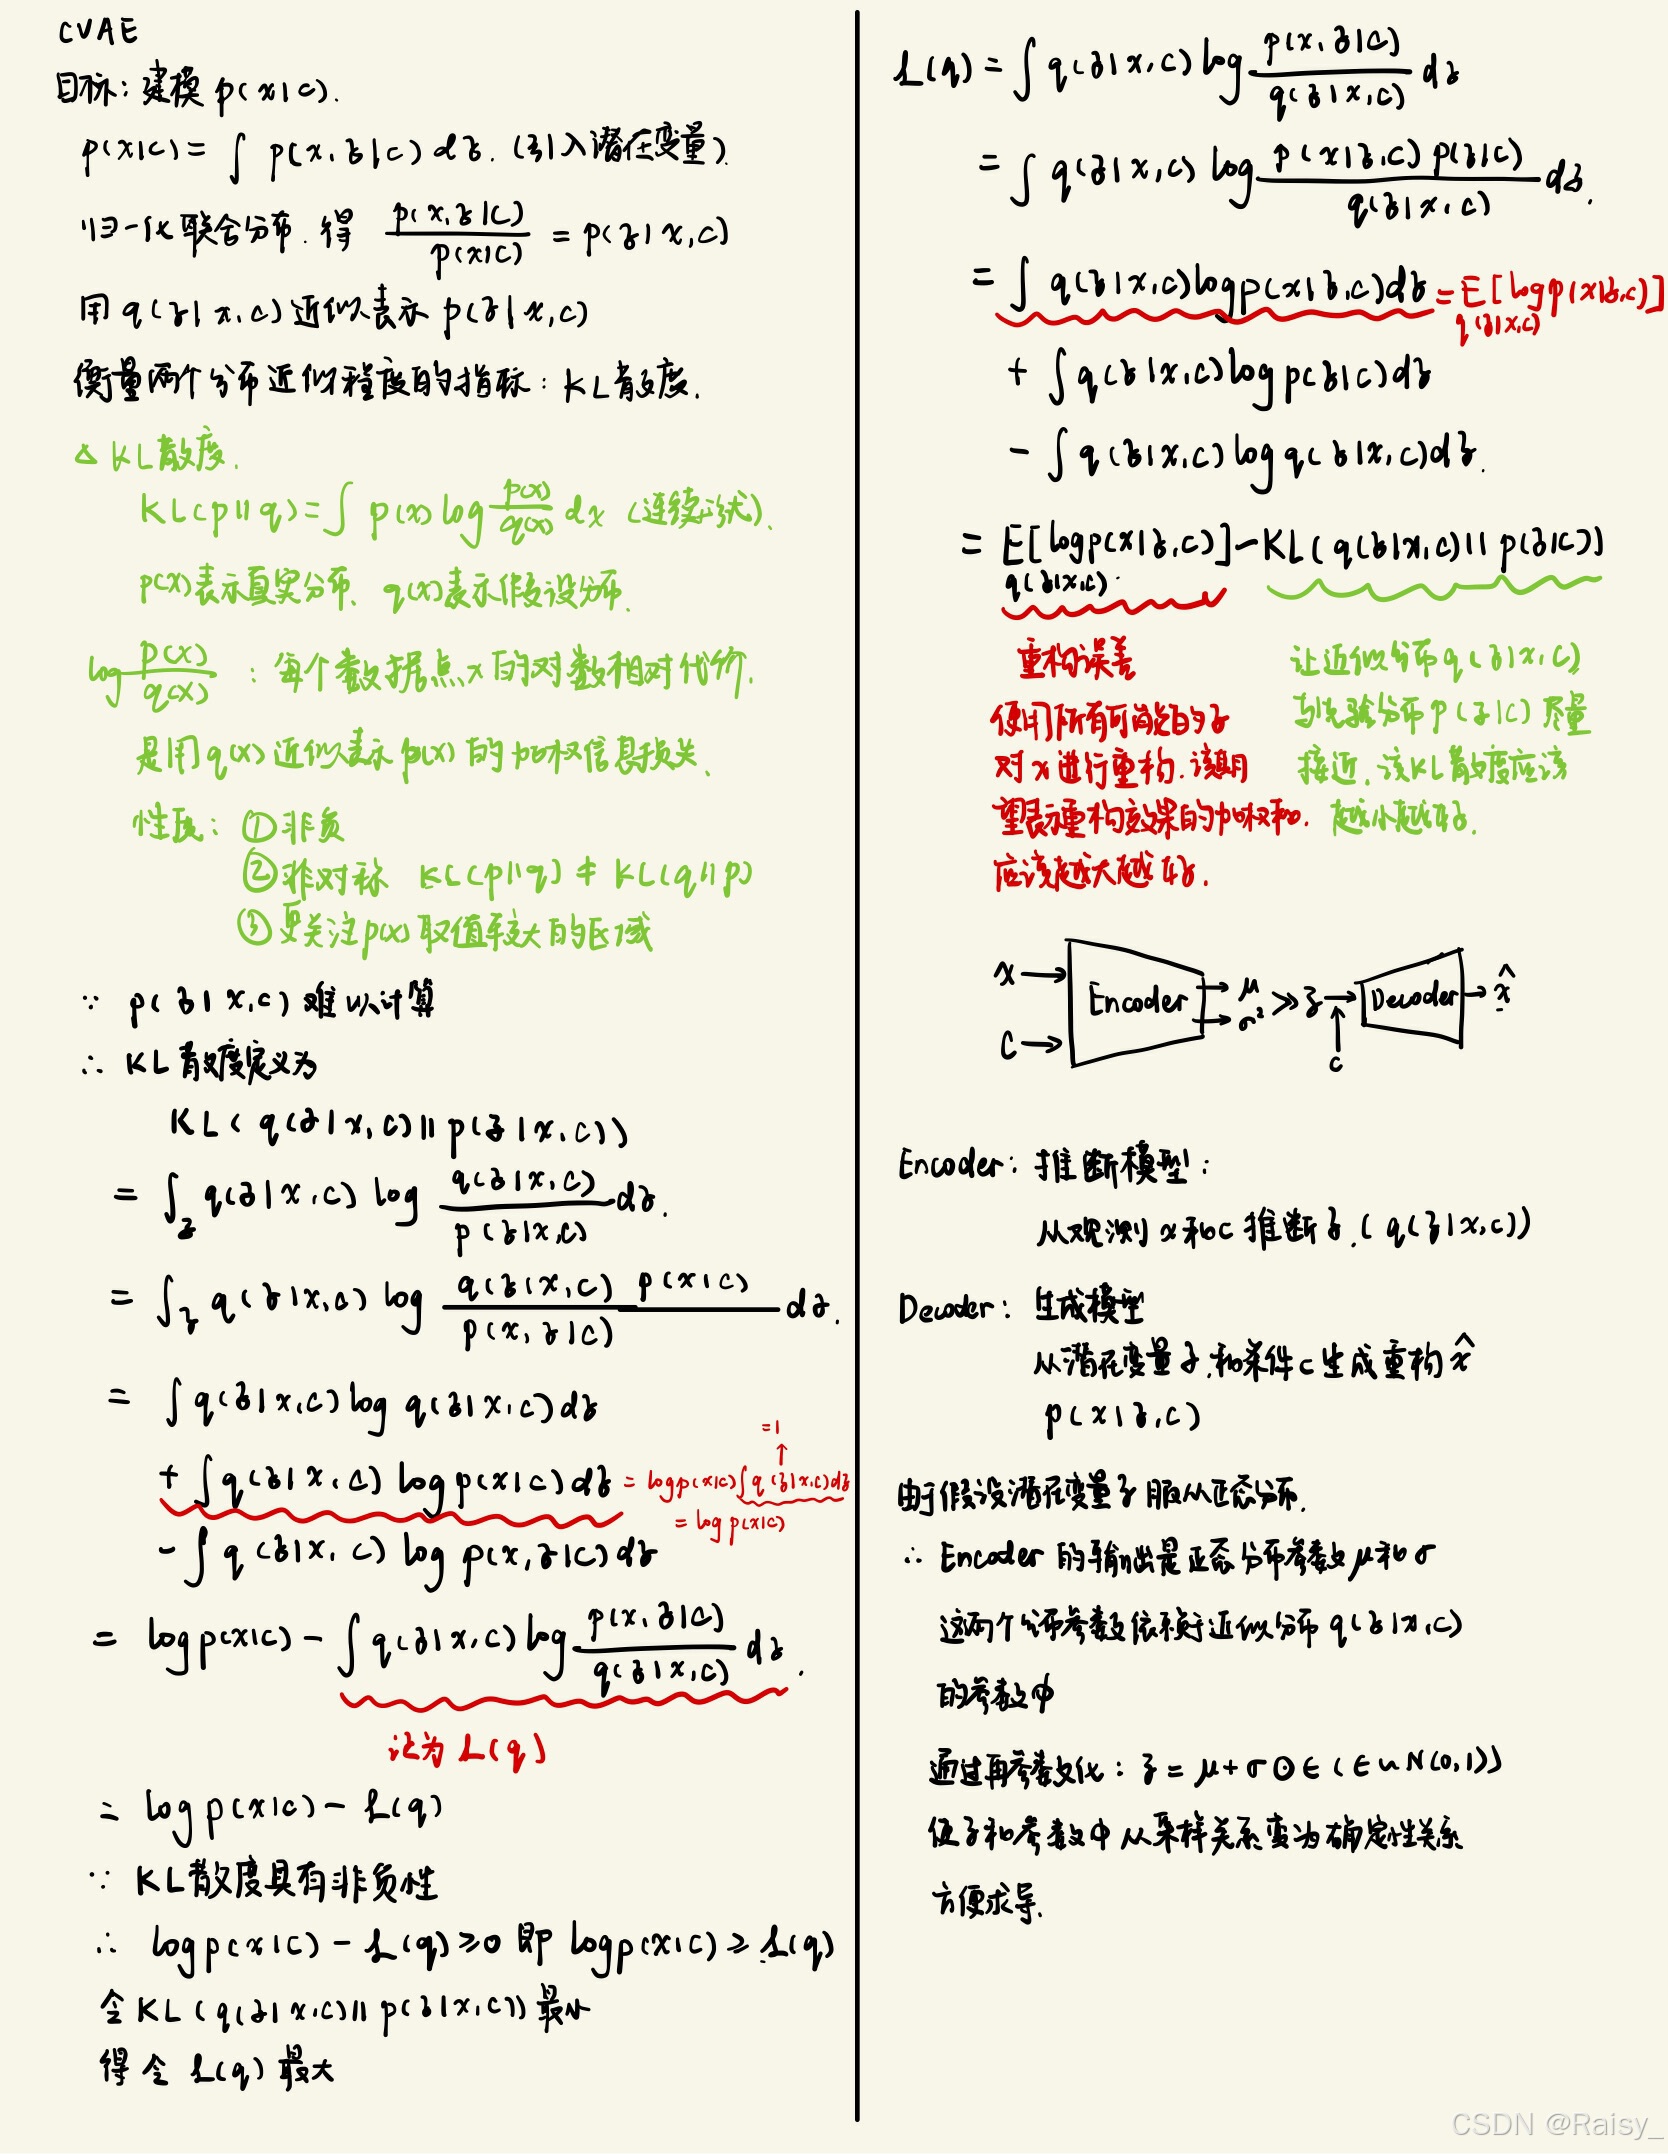 CVAE
目标：建模 p(x|c).
p(x|c) = ∫ p(x, z|c) dz. (引入潜在变量).
归一化联合分布. 得 p(x, z|c) / p(x|c) = p(z|x, c)
用 q(z|x, c) 近似表示 p(z|x, c)
衡量两个分布近似程度的指标：KL散度.
△ KL散度.
KL(p||q) = ∫ p(x) log p(x)/q(x) dx (连续形式).
p(x)表示真实分布、q(x)表示假设分布.
log p(x)/q(x) ：每个数据点x的对数相对代价.
是用q(x)近似表示p(x)的加权信息损失、
性质：①非负
②非对称 KL(p||q) ≠ KL(q||p)
③更关注p(x)取值较大的区域
∵ p(z|x, c) 难以计算
∴ KL散度定义为
KL( q(z|x, c) || p(z|x, c))
= ∫_z q(z|x, c) log q(z|x, c) / p(z|x, c) dz.
= ∫_z q(z|x, c) log q(z|x, c) p(x|c) / p(x, z|c) dz.
= ∫ q(z|x, c) log q(z|x, c) dz
+ ∫ q(z|x, c) log p(x|c) dz = log p(x|c) ∫ q(z|x, c) dz
=1
↑
= log p(x|c)
- ∫ q(z|x, c) log p(x, z|c) dz
= log p(x|c) - ∫ q(z|x, c) log p(x, z|c) / q(z|x, c) dz.
记为 L(q)
= log p(x|c) - L(q)
∵ KL散度具有非负性
∴ log p(x|c) - L(q) ≥ 0 即 log p(x|c) ≥ L(q)
令 KL(q(z|x, c) || p(z|x, c)) 最小
得令 L(q) 最大
L(q) = ∫ q(z|x, c) log p(x, z|c) / q(z|x, c) dz
= ∫ q(z|x, c) log p(x|z, c) p(z|c) / q(z|x, c) dz.
= ∫ q(z|x, c) log p(x|z, c) dz = E[log p(x|z, c)]
q(z|x, c)
+ ∫ q(z|x, c) log p(z|c) dz
- ∫ q(z|x, c) log q(z|x, c) dz.
= E[log p(x|z, c)] - KL( q(z|x, c) || p(z|c))
q(z|x, c)
重构误差
使用所有可能的z
对x进行重构. 该期
望表示重构效果的加权和.
应该越大越好.
让近似分布q(z|x, c)
与先验分布p(z|c)尽量
接近. 该KL散度应该
越小越好.
x → Encoder → μ
c → → σ² ≫ z → Decoder → x̂
↑
c
Encoder：推断模型：
从观测x和c推断z.( q(z|x, c))
Decoder：生成模型
从潜在变量z.和条件c生成重构x̂
p(x|z, c)
由于假设潜在变量z服从正态分布.
∴ Encoder的输出是正态分布参数μ和σ
这两个分布参数依赖于近似分布q(z|x, c)
的参数φ
通过再参数化：z = μ + σ ⊙ ∈ (∈ ~ N(0, 1))
使z和参数φ从采样关系变为确定性关系
方便求导.
CSDN @Raisy_